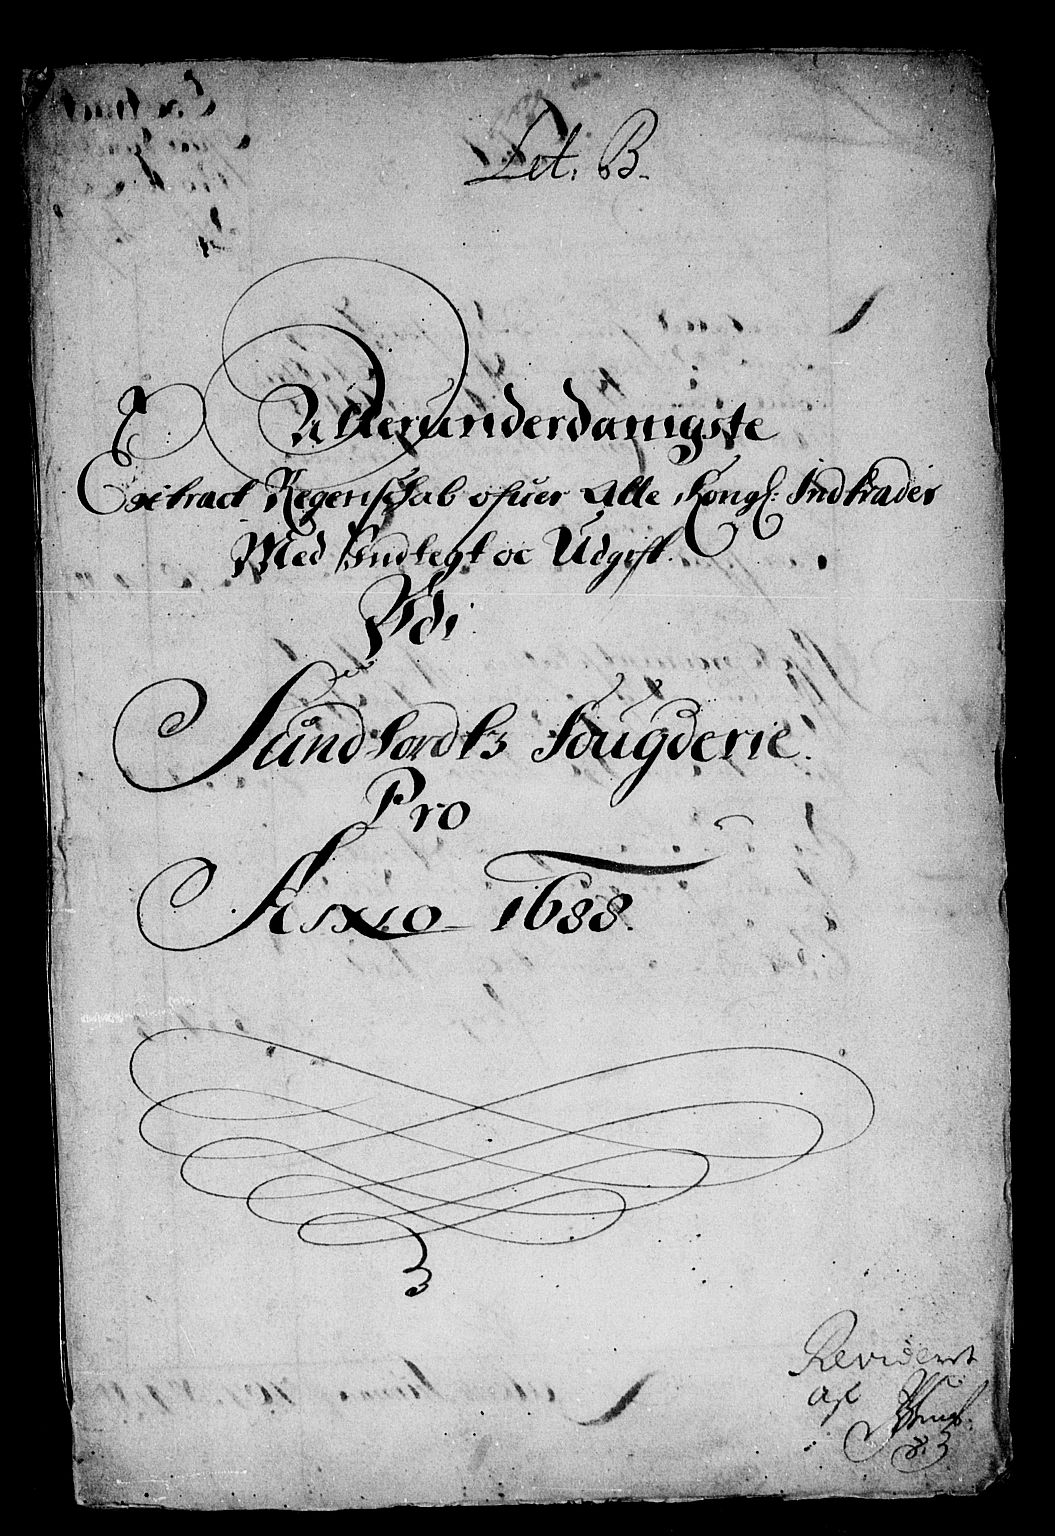 Let. B.
Allerunderdanigste
Extract Regenskab ofuer Alle Kongl: Indtrader
Med Indtegt oc Udgift
Udi
Sundhordlehns Fougderie.
Pro
Anno 1688.
Revideret
af